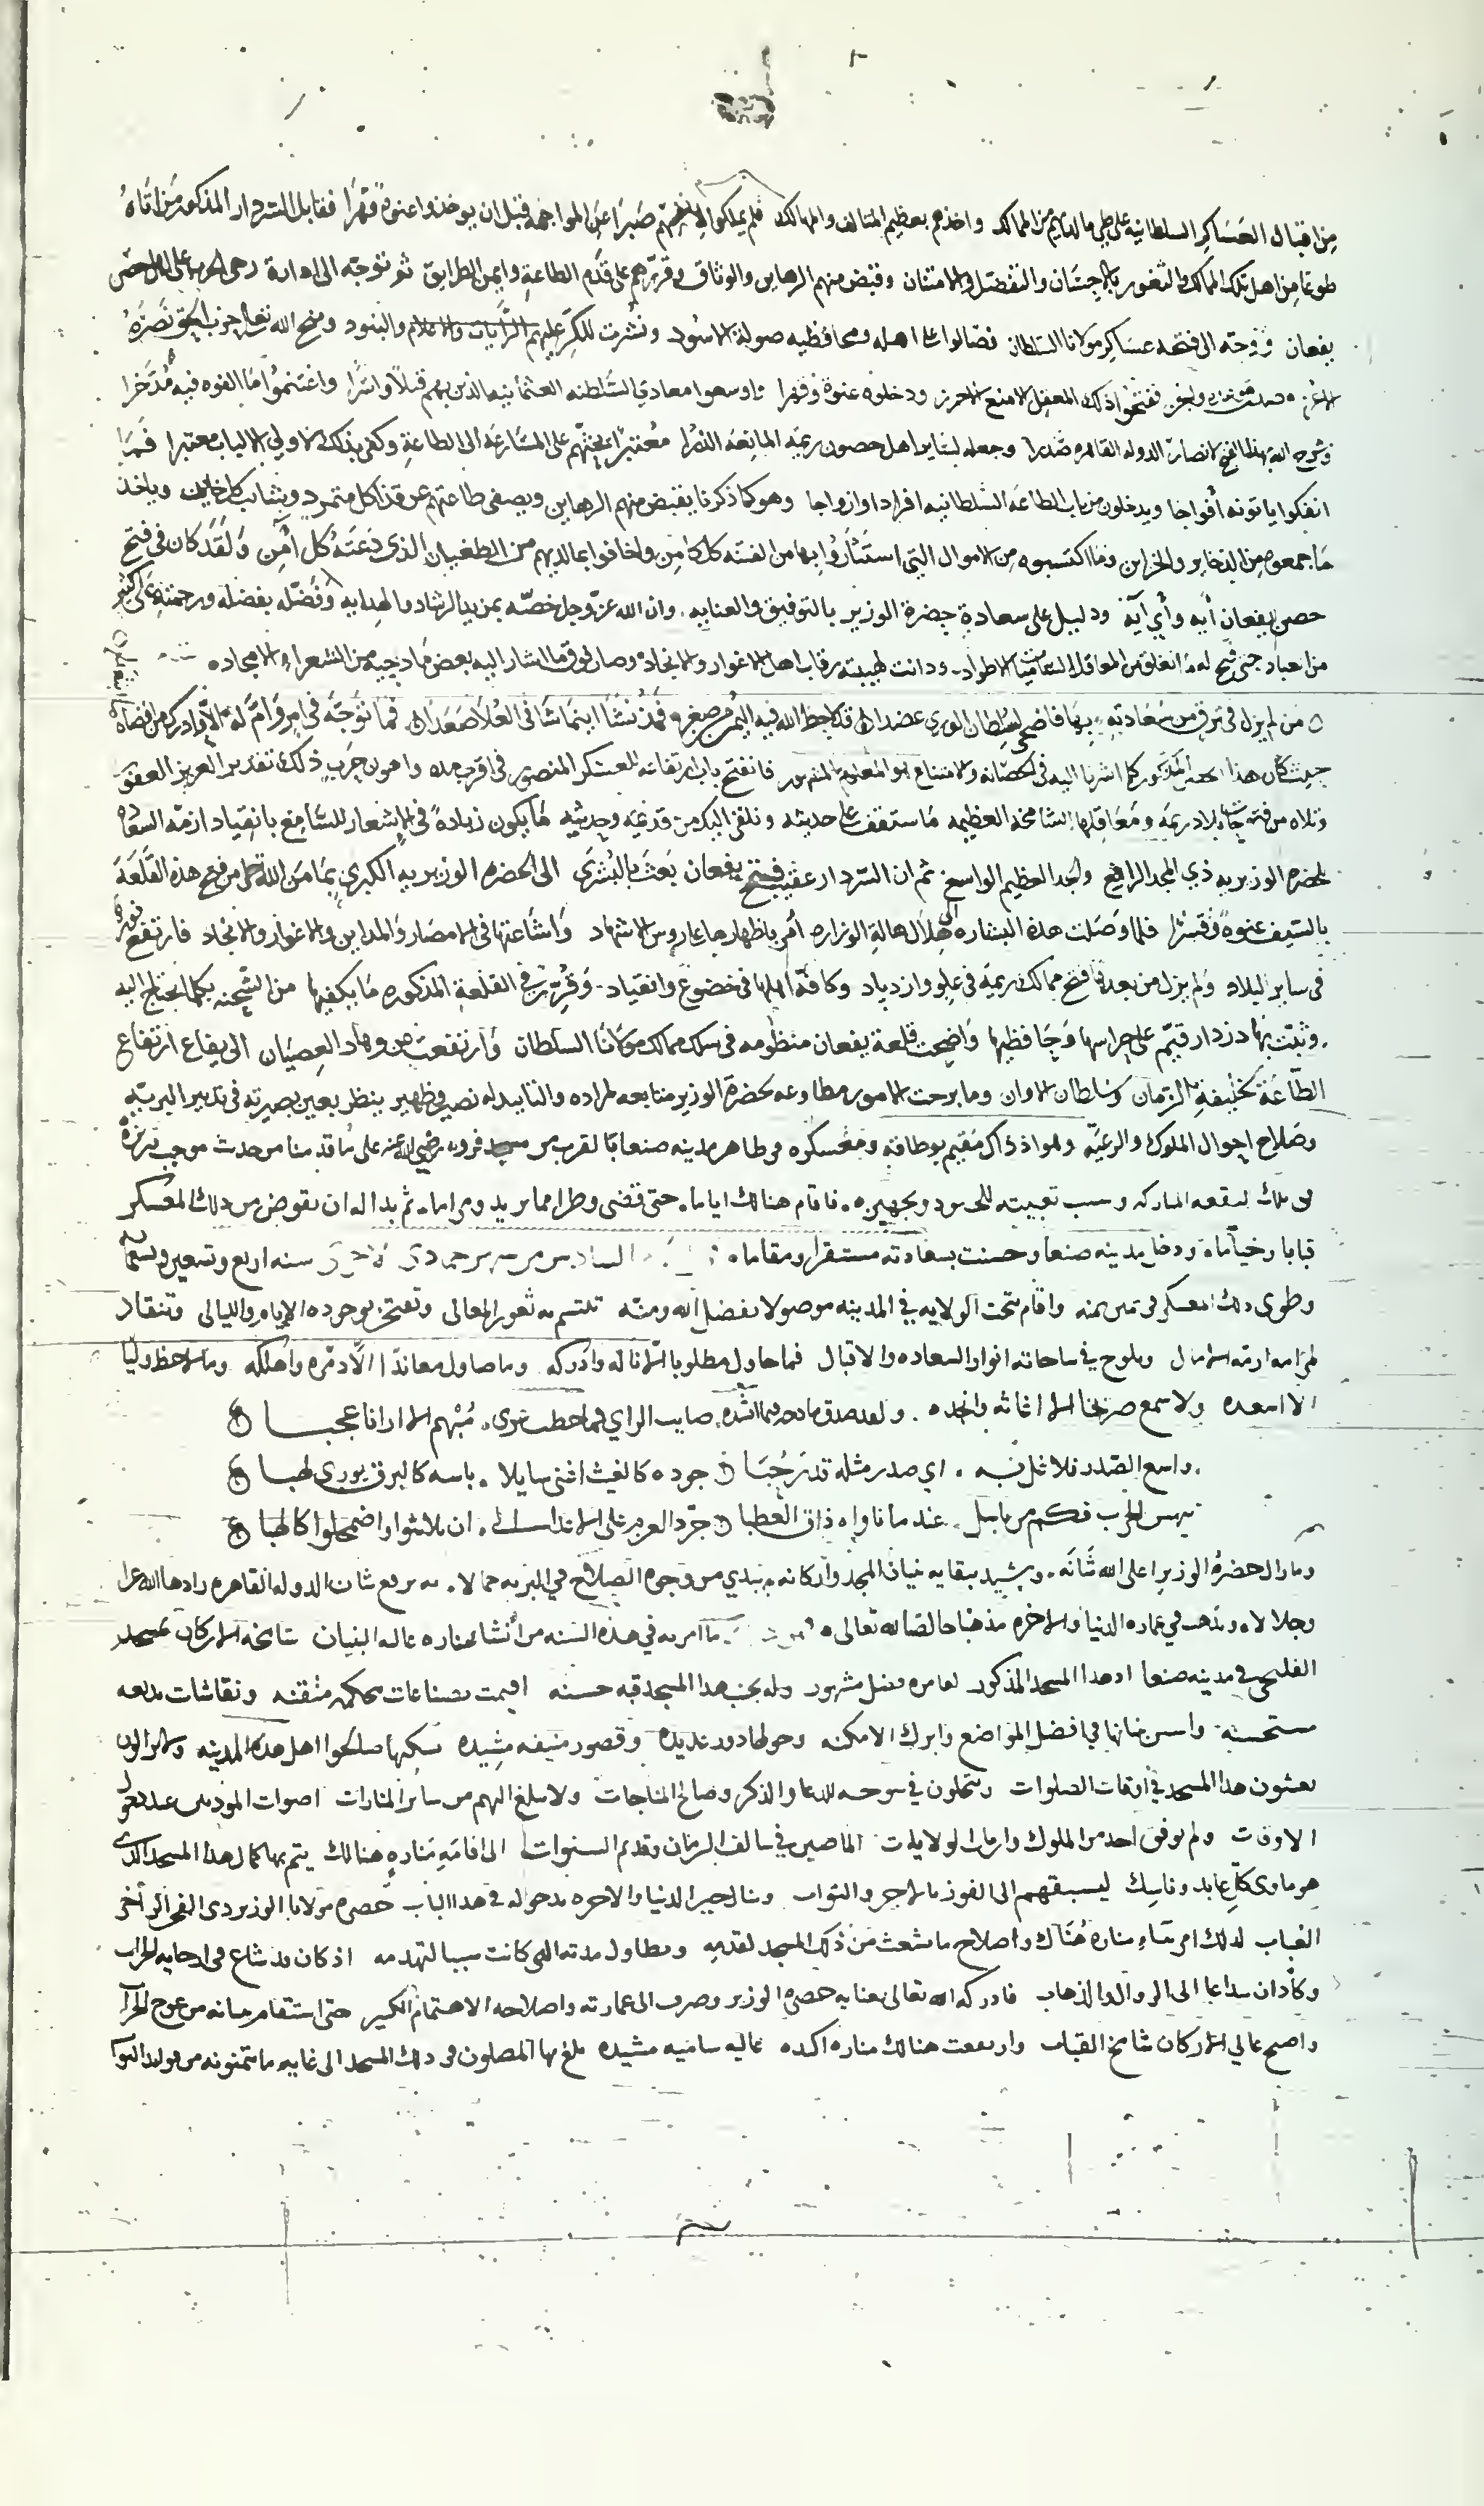 من اقبال العساكر السلطانيه على طي ما لديهم من الممالك واخذهم بعظيم المتالف والمهالك فلم يملكوا لانفسهم صبرا عن المواجهه قبل ان يوخذوا عنوة وقهرا فقابل السردار المذكور من اتاه
طوعا من اهل تلك الممالك والثغور بالاحسان والتفضل والامتنان وقبض منهم الرهاين والوثاق وقررهم على قدم الطاعة وايمن الطرايق ثم توجه الى ادارة رحى الحرب على اهل حصن
يفعان ووجه الى فتحه عساكر مولانا السلطان فصالوا على اهله ومحافظيه صولة الاسود ونشرت للكر عليهم الرايات والاعلام والبنود ومنح الله تعالى حزب الحق نصره
ففتحوا ذلك المعقل الامنع الاحرز ودخلوه عنوة وقهرا واوسعوا معادي السلطنه العثمانيه الذين بهم قتلا واسرا واغتنموا ما الفوه فيه مدخرا
وشرح الله بهذا الفتح لانصار الدوله القاهره صدرا وجعله لساير اهل حصون ريمه المانعه الذرا معتبرا يحثهم على المسارعه الى الطاعة وكفى بذلك لاولي الالباب معتبرا فما
انفكوا ياتونه أفواجا ويدخلون من باب الطاعه السلطانيه افرادا وازواجا وهو كما ذكرنا يقبض منهم الرهاين ويصفى طاعتهم عن قذا كل متمرد وشايب كل خاين وياخذ
ما جمعوه من الذخاير والخزاين وما اكتسبوه من الاموال التي استثاروا بها من الفتنه كل كامن واخافوا بما لديهم من الطغيان الذي دعته كل آمن ولقد كان في فتح
حصن يفعان آيه وأي آية ودليل على سعادة حضرة الوزير بالتوفيق والعنايه وان الله عز وجل خصه بمزيد الرشاد والهدايه وفضله بفضله ورحمته على كثير
من العباد حتى فتح له ما انغلق من المعاقل الشامخات الاطواد ودانت لهيبته رقاب اهل الاغوار والانجاد وصار فوق ما اشار اليه بعض مادحيه من الشعراء الامجاده
من لم يزل في ترق من سعادته بها فاضحى لسلطان الورى عضدا قد لاحظ الله فيه اليمن من صغر فمذ نشا اينما شا فى العلا صعدا فما توجه في امر فرام له الا وادرك من اقصاه
حيث كان هذا المذكور كما اشرنا اليه فى الحصانه والامتناع فانفتح باب ارتفاعه للعسكر المنصور فى اقرب مده واهون حرب ذلك تقدير العزيز العفو
وتلاه من فتوحات بلاد ريمه ومعاقلها الشامخه العظيمه ما ستقف على حديثه ونلقي اليك من قديمه وحديثه ما يكون زيادة في الاشعار للسامع بانقياد ازمة السعاده
للحضره الوزيريه ذي المجد الرافع والجد العظيم الواسع ثم ان السردار عقيب فتح يفعان بعث بالبشرى الى الحضره الوزيريه الكبرى بما من الله تعالى من فتح هذه القلعة
بالسيف عنوة وقسرا فلما وصلت هذه البشاره الى هلال هالة الوزاره أمر باظهارها على روس الاشهاد واشاعتها فى الامصار والمداين والاغوار والانجاد فارتفع
فى ساير البلاد ولم يزل من بعدها فتح ممالك ريمة فى علو وازدياد وكافة اهلها فى خضوع وانقياد وقرر في القلعة المذكوره ما يكفيها من الشحنه بكلما تحتاج اليه
وثبت بها دزدار قيم على حراسها ومحافظيها واضحت قلعة يفعان منظومه فى سلك ممالك مولانا السلطان وارتفعت من وهاد العصيان الى يفاع ارتفاع
الطاعة لخليفة الزمان وسلطان الاوان وما برحت الامور مطاوعه لحضرة الوزير متابعه لمراده والتاييد له نصير وظهير ينظر بعين بصيرته فى تدبير البريه
وصلاح احوال الملوك والرعيه ولهو اذ ذاك مقيم بوطاقه ومعسكره في ظاهر مدينه صنعا بالقرب من مسجد فروه رضي الله عنه على ما قدمنا من حدث موجب بروزه
الى تلك البقعه المباركه وسبب تعبيته للجنود وتجهيزه فاقام هنالك اياما حتى قضى وطرا مما يريد ومراما ثم بدا له ان يقوض من ذلك المعسكر
قبابا وخياما ودخل مدينه صنعا وحسنت بسعادته مستقرا ومقاما السادس من شهر جمادى الاخرى سنه اربع وتسعين وتسعمائة
وطوى ذلك المعسكر واقام بتخت الولايه في المدينه موصولا بفضل الله ومنه تبتسم به ثغور المعالي وتفتخر بوجوده الايام والليالي وتنقاد
ويلوح في ساحاته انوار السعاده والاقبال فما حاول مطلوبا الا ناله وادركه وما صاول معاندا الا دمره واهلكه وما لاحظ وليا
الا اسعده ولا سمع صريخا الا اغاثه وانجده ولقد صدق مادحه فيما انشده صايب الراي فما خطب عرى مبهم الا ارانا عجبا
واسع الصدر اي صدر مثله قد رحبا جوده كالغيث اغنى سايلا باسه كالبرق يوري لهبا
عندما ناواه ذاق العطبا جرد العزم على ان تلاشوا واضمحلوا كالهبا
وما زال حضرة الوزير اعلى الله شانه وشيد ببقايه بنيان المجد واركانه يبدي من وجوه الصلاح في البريه جمالا به يرفع شان الدوله القاهره زادها الله عزا
وجلالا ويذهب في عماره الدنيا والاخره مذهبا خالصا لله تعالى ما امر به في هذه السنه من أنشا مناره عاليه البنيان شامخه الاركان بمسجد
الفليحي في مدينه صنعا اذ هذا المسجد المذكور لعامره فضل مشهور وله بجنب هذا المسجد قبه حسنه اقيمت بصناعات محكمه متقنه ونقاشات بديعه
مستحسنه واسس بنيانها في افضل المواضع وابرك الامكنه وحولها دور عديده وقصور منيفه مشيده يسكنها صالحوا اهل هذه المدينه ولا يزالون
يغشون هذا المسجد في اوقات الصلوات ويتحلون في سوحه للدعا والذكر وصالح المناجات ولا يبلغ اليهم من ساير المنارات اصوات الموذنين عند دخول
الاوقات ولم يوفق احد من الملوك وارباب الولايات الماضين في سالف الزمان وقديم السنوات الى اقامة مناره هنالك يتم بها كمال هذا المسجد الذي
هو ماوى كل عابد وناسك ليسبقهم الى الفوز بالاجر والثواب وينال خير الدنيا والاخره بدخوله في هذا الباب حضره مولانا الوزير ذي الفخر الزاخر
العباب لذلك امر بناء مناره هناك واصلاح ما تشعث من ذلك المسجد لقدمه وتطاول مدته التي كانت سببا لتهدمه اذ كان قد شاع في ارجايه الخراب
وكاد ان يتداعا الى الزوال والذهاب فادركه الله تعالى بعنايه حضره الوزير وصرف الى عمارته واصلاحه الاهتمام الكبير حتى استقام بنيانه من عوج الخراب
واصبح عالي الاركان شامخ القباب وارتفعت هنالك مناره اكيده عاليه ساميه مشيده بلغ بها المصلون في ذلك المسجد الى غايه ما يتمنونه من فوايد الثواب